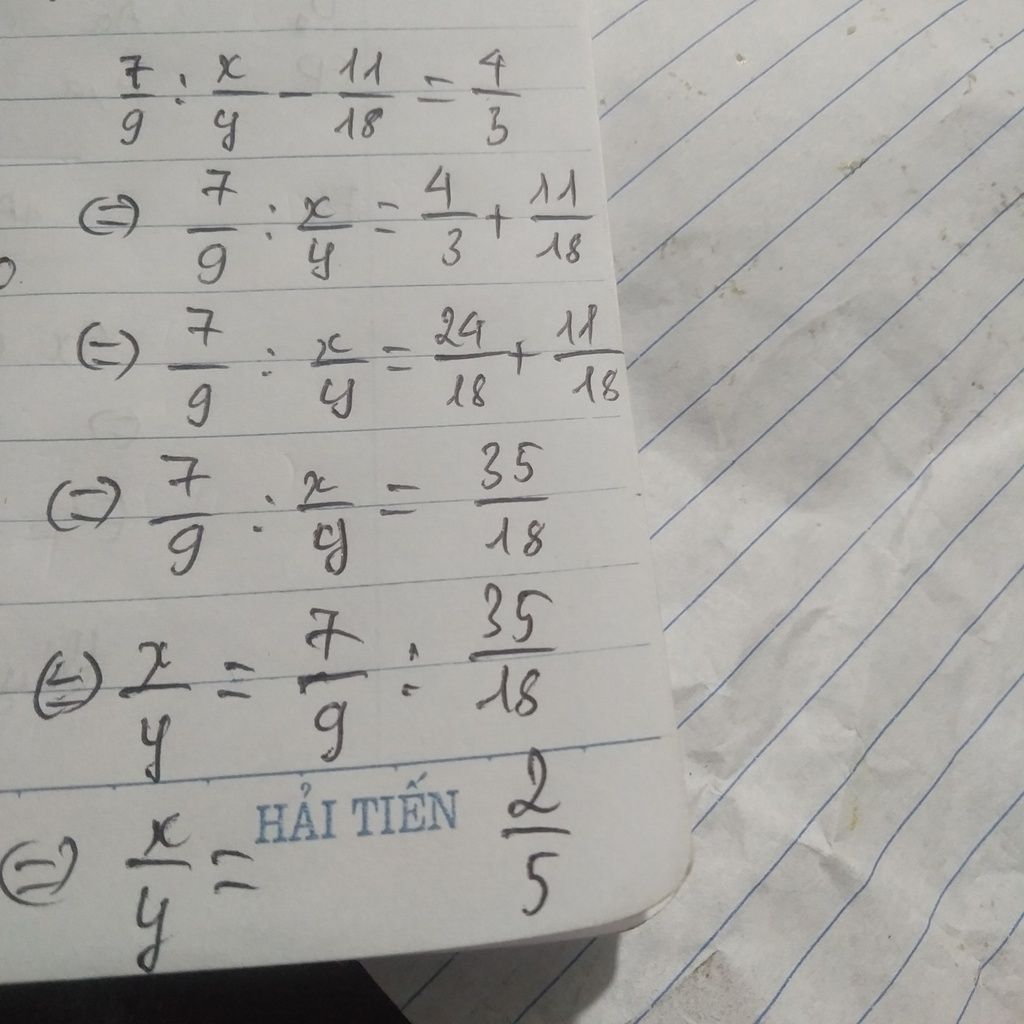 7/9 : x/y - 11/18 = 4/3
⇔ 7/9 : x/y = 4/3 + 11/18
⇔ 7/9 : x/y = 24/18 + 11/18
⇔ 7/9 : x/y = 35/18
⇔ x/y = 7/9 : 35/18
HẢI TIẾN
⇔ x/y = 2/5